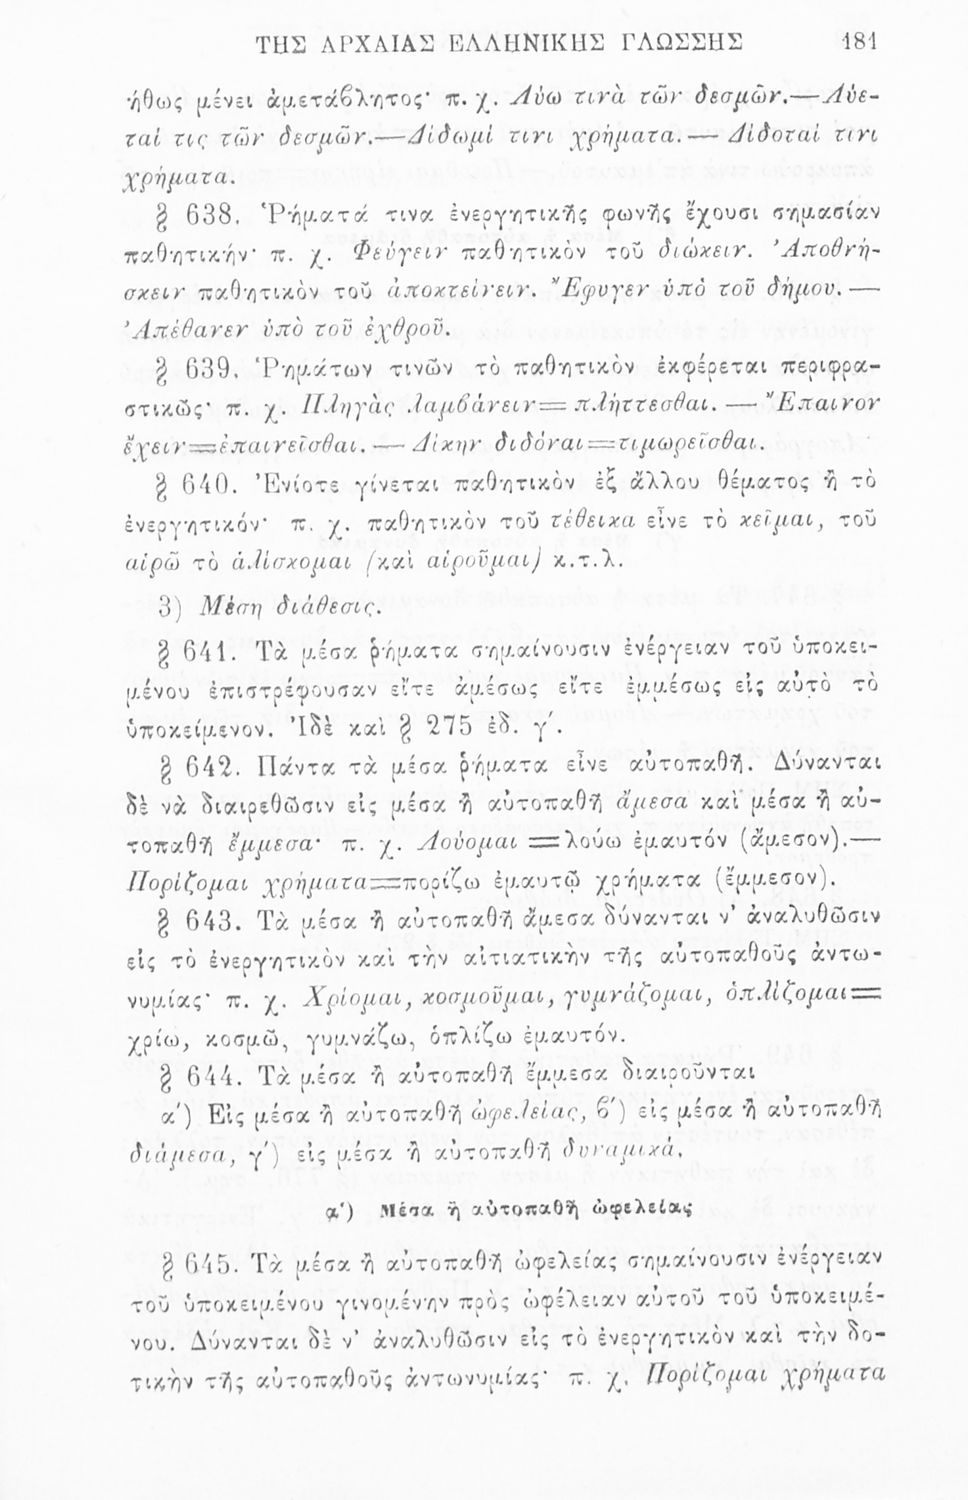 ΤΗΣ ΑΡΧΑΙΑΣ ΕΛΛΗΝΙΚΗΣ ΓΛΩΣΣΗΣ 181
ήθως μένει ἀμετάβλητος· π. χ. Λύω τινὰ τῶν δεσμῶν.—Λύε-
ταί τις τῶν δεσμῶν.—Δίδωμί τινι χρήματα.—Δίδοταί τινι
χρήματα.
§ 638. Ῥήματά τινα ἐνεργητικῆς φωνῆς ἔχουσι σημασίαν
παθητικήν· π. χ. Φεύγειν παθητικὸν τοῦ διώκειν. Ἀποθνή-
σκειν παθητικὸν τοῦ ἀποκτείνειν. Ἔφυγεν ὑπὸ τοῦ δήμου.—
Ἀπέθανεν ὑπὸ τοῦ ἐχθροῦ.
§ 639. Ῥημάτων τινῶν τὸ παθητικὸν ἐκφέρεται περιφρα-
στικῶς· π. χ. Πληγὰς λαμβάνειν=πλήττεσθαι.—Ἔπαινον
ἔχειν=ἐπαινεῖσθαι.—Δίκην διδόναι=τιμωρεῖσθαι.
§ 640. Ἐνίοτε γίνεται παθητικὸν ἐξ ἄλλου θέματος ἢ τὸ
ἐνεργητικόν· π. χ. παθητικὸν τοῦ τέθεικα εἶνε τὸ κεῖμαι, τοῦ
αἱρῶ τὸ ἁλίσκομαι (καὶ αἱροῦμαι) κ.τ.λ.
3) Μέση διάθεσις.
§ 641. Τὰ μέσα ῥήματα σημαίνουσιν ἐνέργειαν τοῦ ὑποκει-
μένου ἐπιστρέφουσαν εἴτε ἀμέσως εἴτε ἐμμέσως εἰς αὐτὸ τὸ
ὑποκείμενον. Ἰδὲ καὶ § 275 ἐδ. γ΄.
§ 642. Πάντα τὰ μέσα ῥήματα εἶνε αὐτοπαθῆ. Δύνανται
δὲ νὰ διαιρεθῶσιν εἰς μέσα ἢ αὐτοπαθῆ ἄμεσα καὶ μέσα ἢ αὐ-
τοπαθῆ ἔμμεσα· π. χ. Λούομαι=λούω ἐμαυτόν (ἄμεσον).—
Πορίζομαι χρήματα=πορίζω ἐμαυτῷ χρήματα (ἔμμεσον).
§ 643. Τὰ μέσα ἢ αὐτοπαθῆ ἄμεσα δύνανται ν' ἀναλυθῶσιν
εἰς τὸ ἐνεργητικὸν καὶ τὴν αἰτιατικὴν τῆς αὐτοπαθοῦς ἀντω-
νυμίας· π. χ. Χρίομαι, κοσμοῦμαι, γυμνάζομαι, ὁπλίζομαι=
χρίω, κοσμῶ, γυμνάζω, ὁπλίζω ἐμαυτόν.
§ 644. Τὰ μέσα ἢ αὐτοπαθῆ ἔμμεσα διαιροῦνται
α΄) Εἰς μέσα ἢ αὐτοπαθῆ ὠφελείας, β΄) εἰς μέσα ἢ αὐτοπαθῆ
διάμεσα, γ΄) εἰς μέσα ἢ αὐτοπαθῆ δυναμικά.
α΄) Μέσα ἢ αὐτοπαθῆ ὠφελείας
§ 645. Τὰ μέσα ἢ αὐτοπαθῆ ὠφελείας σημαίνουσιν ἐνέργειαν
τοῦ ὑποκειμένου γινομένην πρὸς ὠφέλειαν αὐτοῦ τοῦ ὑποκειμέ-
νου. Δύνανται δὲ ν' ἀναλυθῶσιν εἰς τὸ ἐνεργητικὸν καὶ τὴν δο-
τικὴν τῆς αὐτοπαθοῦς ἀντωνυμίας· π. χ. Πορίζομαι χρήματα